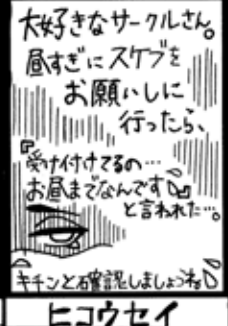 大好きなサークルさん。
昼すぎにスケブを
お願いしに
行ったら、
『受け付けてるの…
お昼までなんです』
と言われた…。
キチンと確認しましょうね
ヒコウセイ